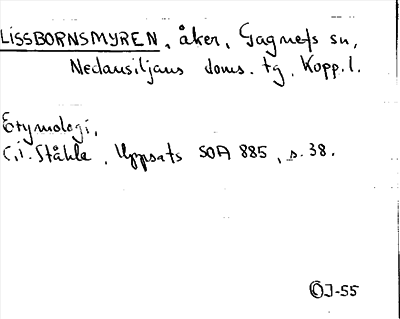 LISSBORNSMYREN, åker, Gagnefs sn,
Nedansiljans doms. tg, Kopp. l.
Etymologi,
C.I. Ståhle, Uppsats SOA 885, s. 38.
OJ-55